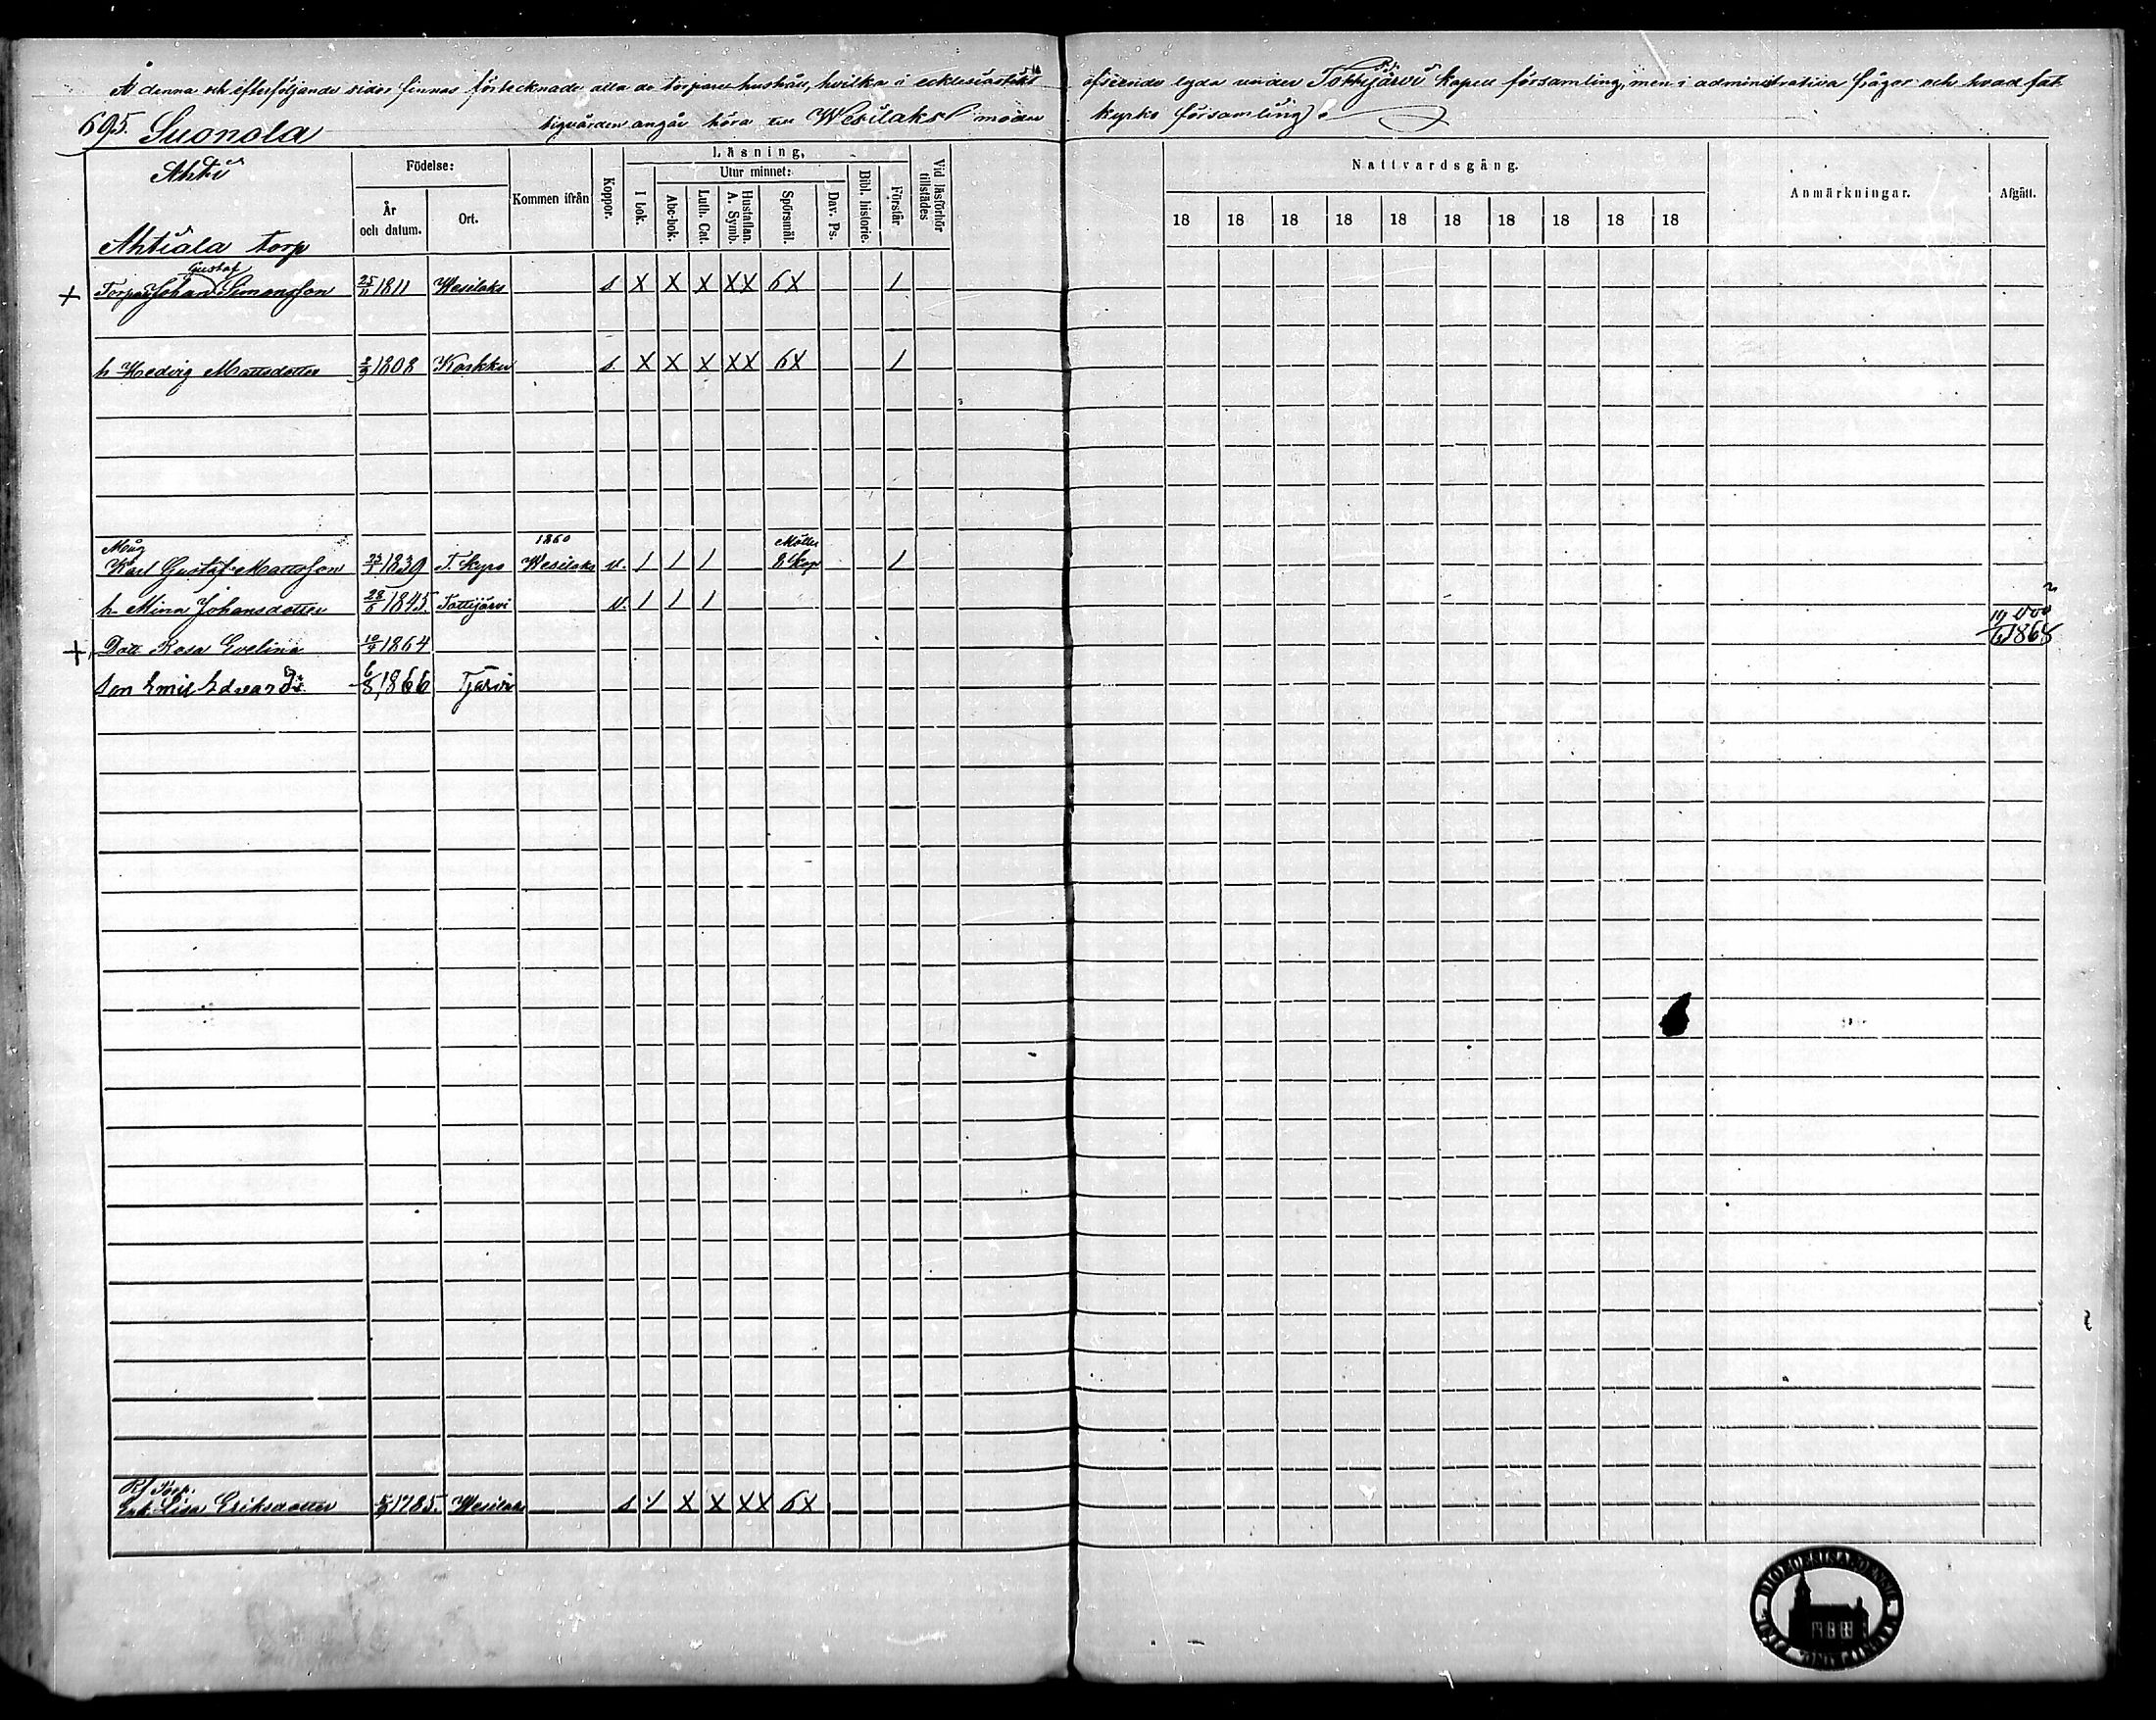 Å denna och efterföljande sidor finnas förtecknade alla de torpare hushåll, hvilka i ecklesiastikt afseende lyda under Tottijärvi kapell församling, men i administrativa frågor och hvad fat
695. Suonola tigvården angår höra till Wesilaks moder kyrko församling.
Ahti
Ahtiala torp
Födelse:
År och datum.
Ort.
Kommen ifrån
Koppor.
Läsning,
I bok.
Utur minnet:
Abc-bok.
Luth. Cat.
Hustaflan. A. Symb.
Spörsmål.
Dav. Ps.
Bibl. historie.
Förstår
Vid läsförhör tillstädes
Nattvardsgång.
18 18 18 18 18 18 18 18 18 18
Anmärkningar.
Afgått.
Gustaf
+ Torpar Johan Simonsson 25/11 1811 Wesilaks s X X X XX 6X 1
h Hedvig Mattsdotter 2/9 1808 Karkku s. X X X XX 6X 1
Måg 1860 Mölle
Karl Gustaf Mattsson 23/1 1839 T. Kyro Wesilaks v. 1 1 1 8 Kap 1
h Mina Johansdotter 28/5 1845. Tottijärvi v. 1 1 1
+ Dott Rosa Evelina 10/9 1864 1868
son Emil Edvard 6/8 1866 Tjärvi
Torp.
Enk. Lisa Eriksdotter 5/9 1785. Wesilaks s 1 X X XX 6X